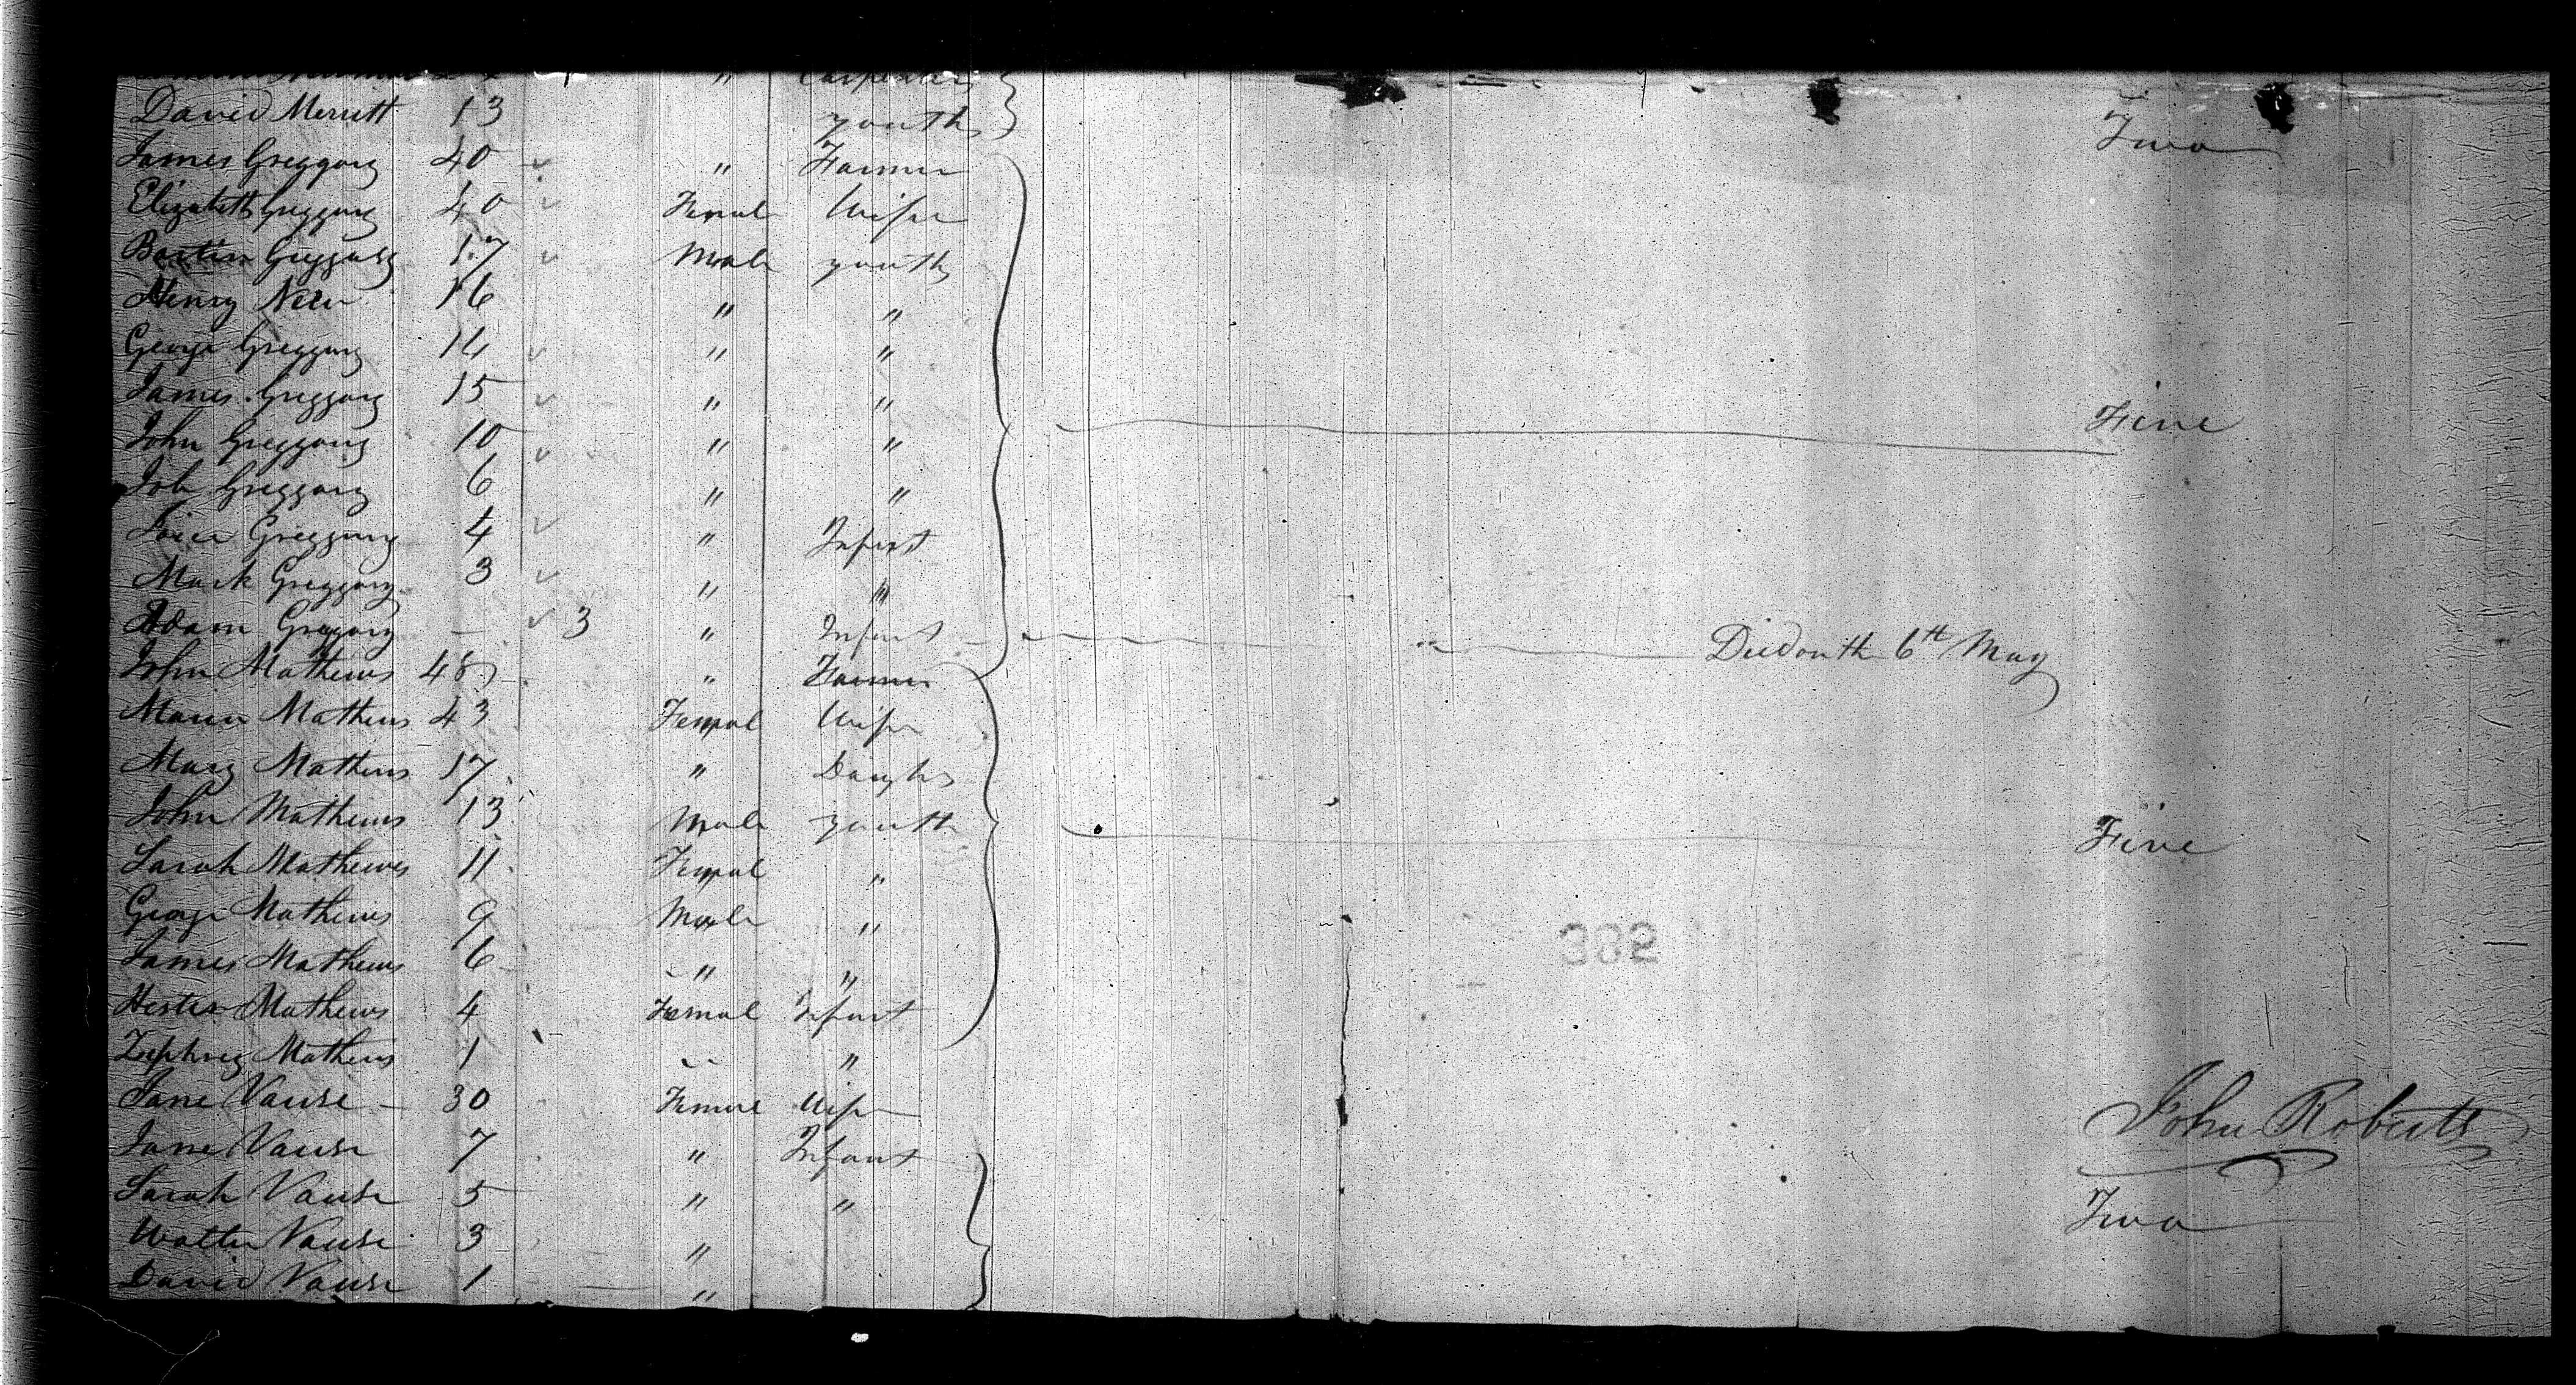 " Carpenter
David Merritt 13 youth Two
James Greggory 40 " Farmer
Elizabeth Greggory 40 Femal Wife
Greggory 17 Male youth
Henry New 16 " "
George Greggory 14 " "
James Greggory 15 " "
John Greggory 10 " " Five
Job Greggory 6 " "
Greggory 4 " Infant
Mark Greggory 3 " "
Adam Greggory — 3 " Infant Died on th 6th May
John Mathews 48 " Farmer
Mathews 43 Femal Wife
Mary Mathews 17 " Daughter
John Mathews 13 Male youth Five
Sarah Mathews 11 Femal "
George Mathews 9 Male "
James Mathews 6 " "
Hester Mathews 4 Femal Infant
Mathews 1 "
Jane Vause 30 Female Wife John Roberts
Jane Vause 7 " Infant
Sarah Vause 5 " " Two
Walter Vause 3 "
David Vause 1 "